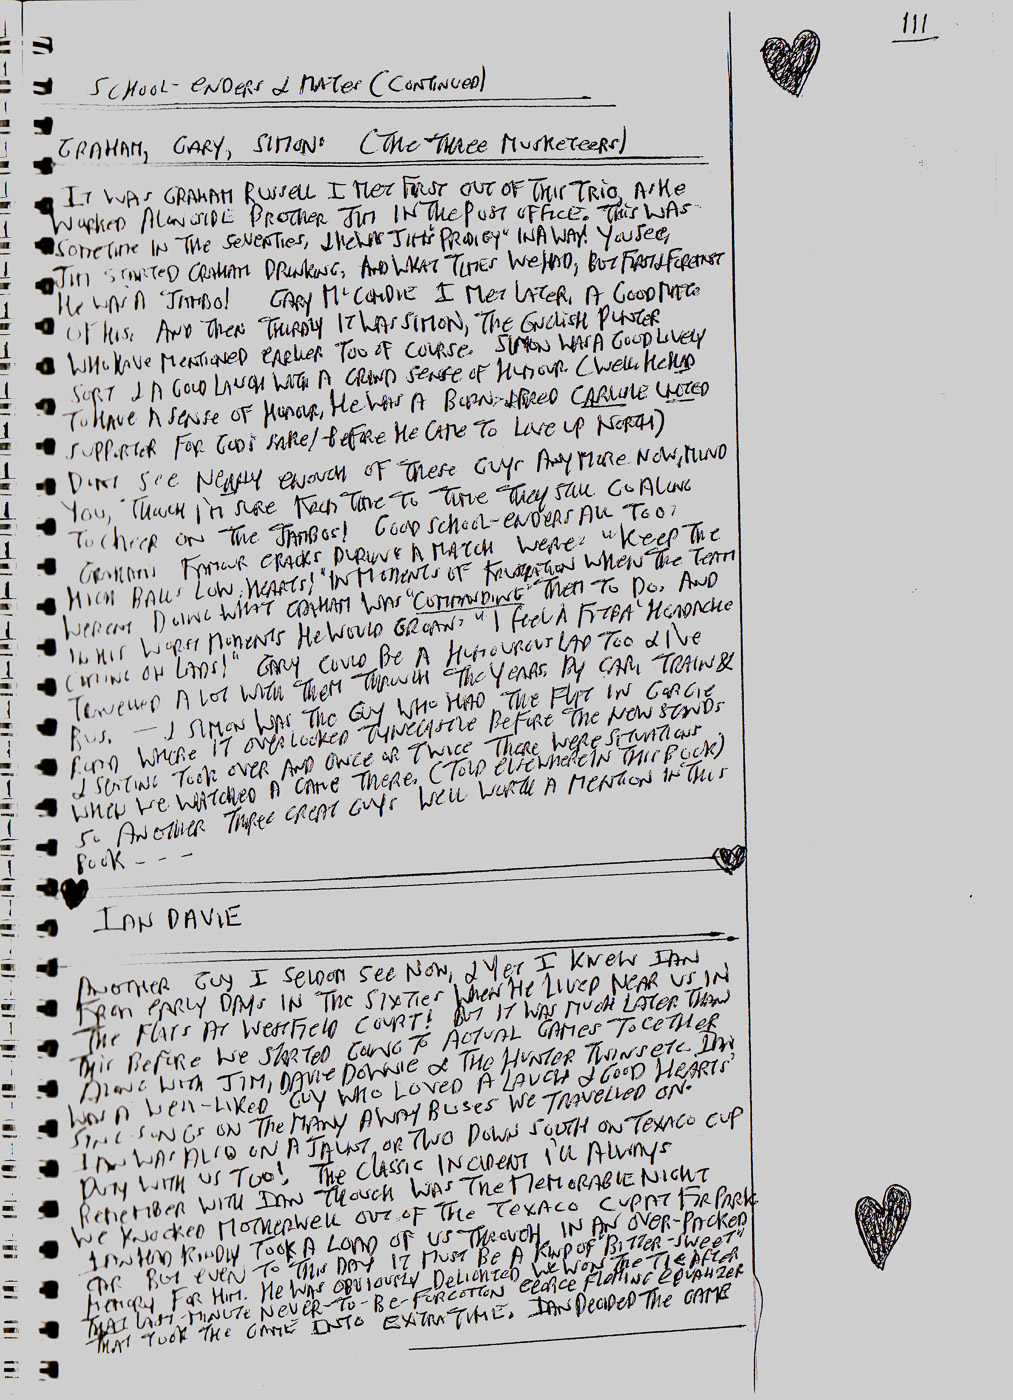 111
SCHOOL-ENDERS & MATES (CONTINUED)
GRAHAM, GARY, SIMON: (THE THREE MUSKETEERS)
IT WAS GRAHAM RUSSELL I MET FIRST OUT OF THIS TRIO, AS HE
WORKED ALONGSIDE BROTHER JIM IN THE POST OFFICE. THIS WAS
SOMETIME IN THE SEVENTIES, & HE WAS JIM'S "PRODIGY" IN A WAY! YOU SEE,
JIM STARTED GRAHAM DRINKING, AND WHAT TIMES WE HAD, BUT FIRST & FOREMOST
HE WAS A JAMBO! GARY McCONDIE I MET LATER, A GOOD MATE
OF HIS. AND THEN THIRDLY IT WAS SIMON, THE ENGLISH PUNTER
WHO HAVE MENTIONED EARLIER TOO OF COURSE. SIMON WAS A GOOD LIVELY
SORT & A GOOD LAUGH WITH A GRAND SENSE OF HUMOUR. (WELL HE HAD
TO HAVE A SENSE OF HUMOUR, HE WAS A BORN-&-BRED CARLISLE UNITED
SUPPORTER FOR GOD'S SAKE! - BEFORE HE CAME TO LIVE UP NORTH)
DON'T SEE NEARLY ENOUGH OF THESE GUYS ANYMORE NOW, MIND
YOU, THOUGH I'M SURE FROM TIME TO TIME THEY STILL GO ALONG
TO CHEER ON THE JAMBOS! GOOD SCHOOL-ENDERS ALL TOO:
GRAHAMS FAMOUS CRACKS DURING A MATCH WERE: "KEEP THE
HIGH BALLS LOW, HEARTS!" IN MOMENTS OF FRUSTRATION WHEN THE TEAM
WERENT DOING WHAT GRAHAM WAS "COMMANDING" THEM TO DO. AND
IN HIS WORST MOMENTS HE WOULD GROAN: "I FEEL A FITBA' HEADACHE
COMING ON LADS!" GARY COULD BE A HUMOUROUS LAD TOO & I'VE
TRAVELLED A LOT WITH THEM THROUGH THE YEARS, BY CAR, TRAIN &
BUS. — & SIMON WAS THE GUY WHO HAD THE FLAT IN GORGIE
ROAD WHERE IT OVERLOOKED TYNECASTLE BEFORE THE NEW STANDS
& SEATING TOOK OVER AND ONCE OR TWICE THERE WERE SITUATIONS
WHEN WE WATCHED A GAME THERE. (TOLD ELSEWHERE IN THIS BOOK)
SO ANOTHER THREE GREAT GUYS WELL WORTH A MENTION IN THIS
BOOK - - -
IAN DAVIE
ANOTHER GUY I SELDOM SEE NOW, & YET I KNEW IAN
FROM EARLY DAYS IN THE SIXTIES WHEN HE LIVED NEAR US IN
THE FLATS AT WESTFIELD COURT! BUT IT WAS MUCH LATER THAN
THIS BEFORE WE STARTED GOING TO ACTUAL GAMES TOGETHER
ALONG WITH JIM, DAVIE DOWNIE & THE HUNTER TWINS ETC. IAN
WAS A WELL-LIKED GUY WHO LOVED A LAUGH & GOOD HEARTS'
SING SONGS ON THE MANY AWAY BUSES WE TRAVELLED ON.
IAN WAS ALSO ON A JAUNT OR TWO DOWN SOUTH ON TEXACO CUP
DUTY WITH US TOO! THE CLASSIC INCIDENT I'LL ALWAYS
REMEMBER WITH IAN THOUGH WAS THE MEMORABLE NIGHT
WE KNOCKED MOTHERWELL OUT OF THE TEXACO CUP AT FIR PARK
IAN HAD KINDLY TOOK A LOAD OF US THROUGH IN AN OVER-PACKED
CAR. BUT EVEN TO THIS DAY IT MUST BE A KIND OF "BITTER-SWEET"
MEMORY FOR HIM. HE WAS OBVIOUSLY DELIGHTED WE WON THE TIE AFTER
THAT LAST-MINUTE NEVER-TO-BE-FORGOTTEN GEORGE FLEMING EQUALIZER
THAT TOOK THE GAME INTO EXTRA TIME. IAN DECIDED THE GAME